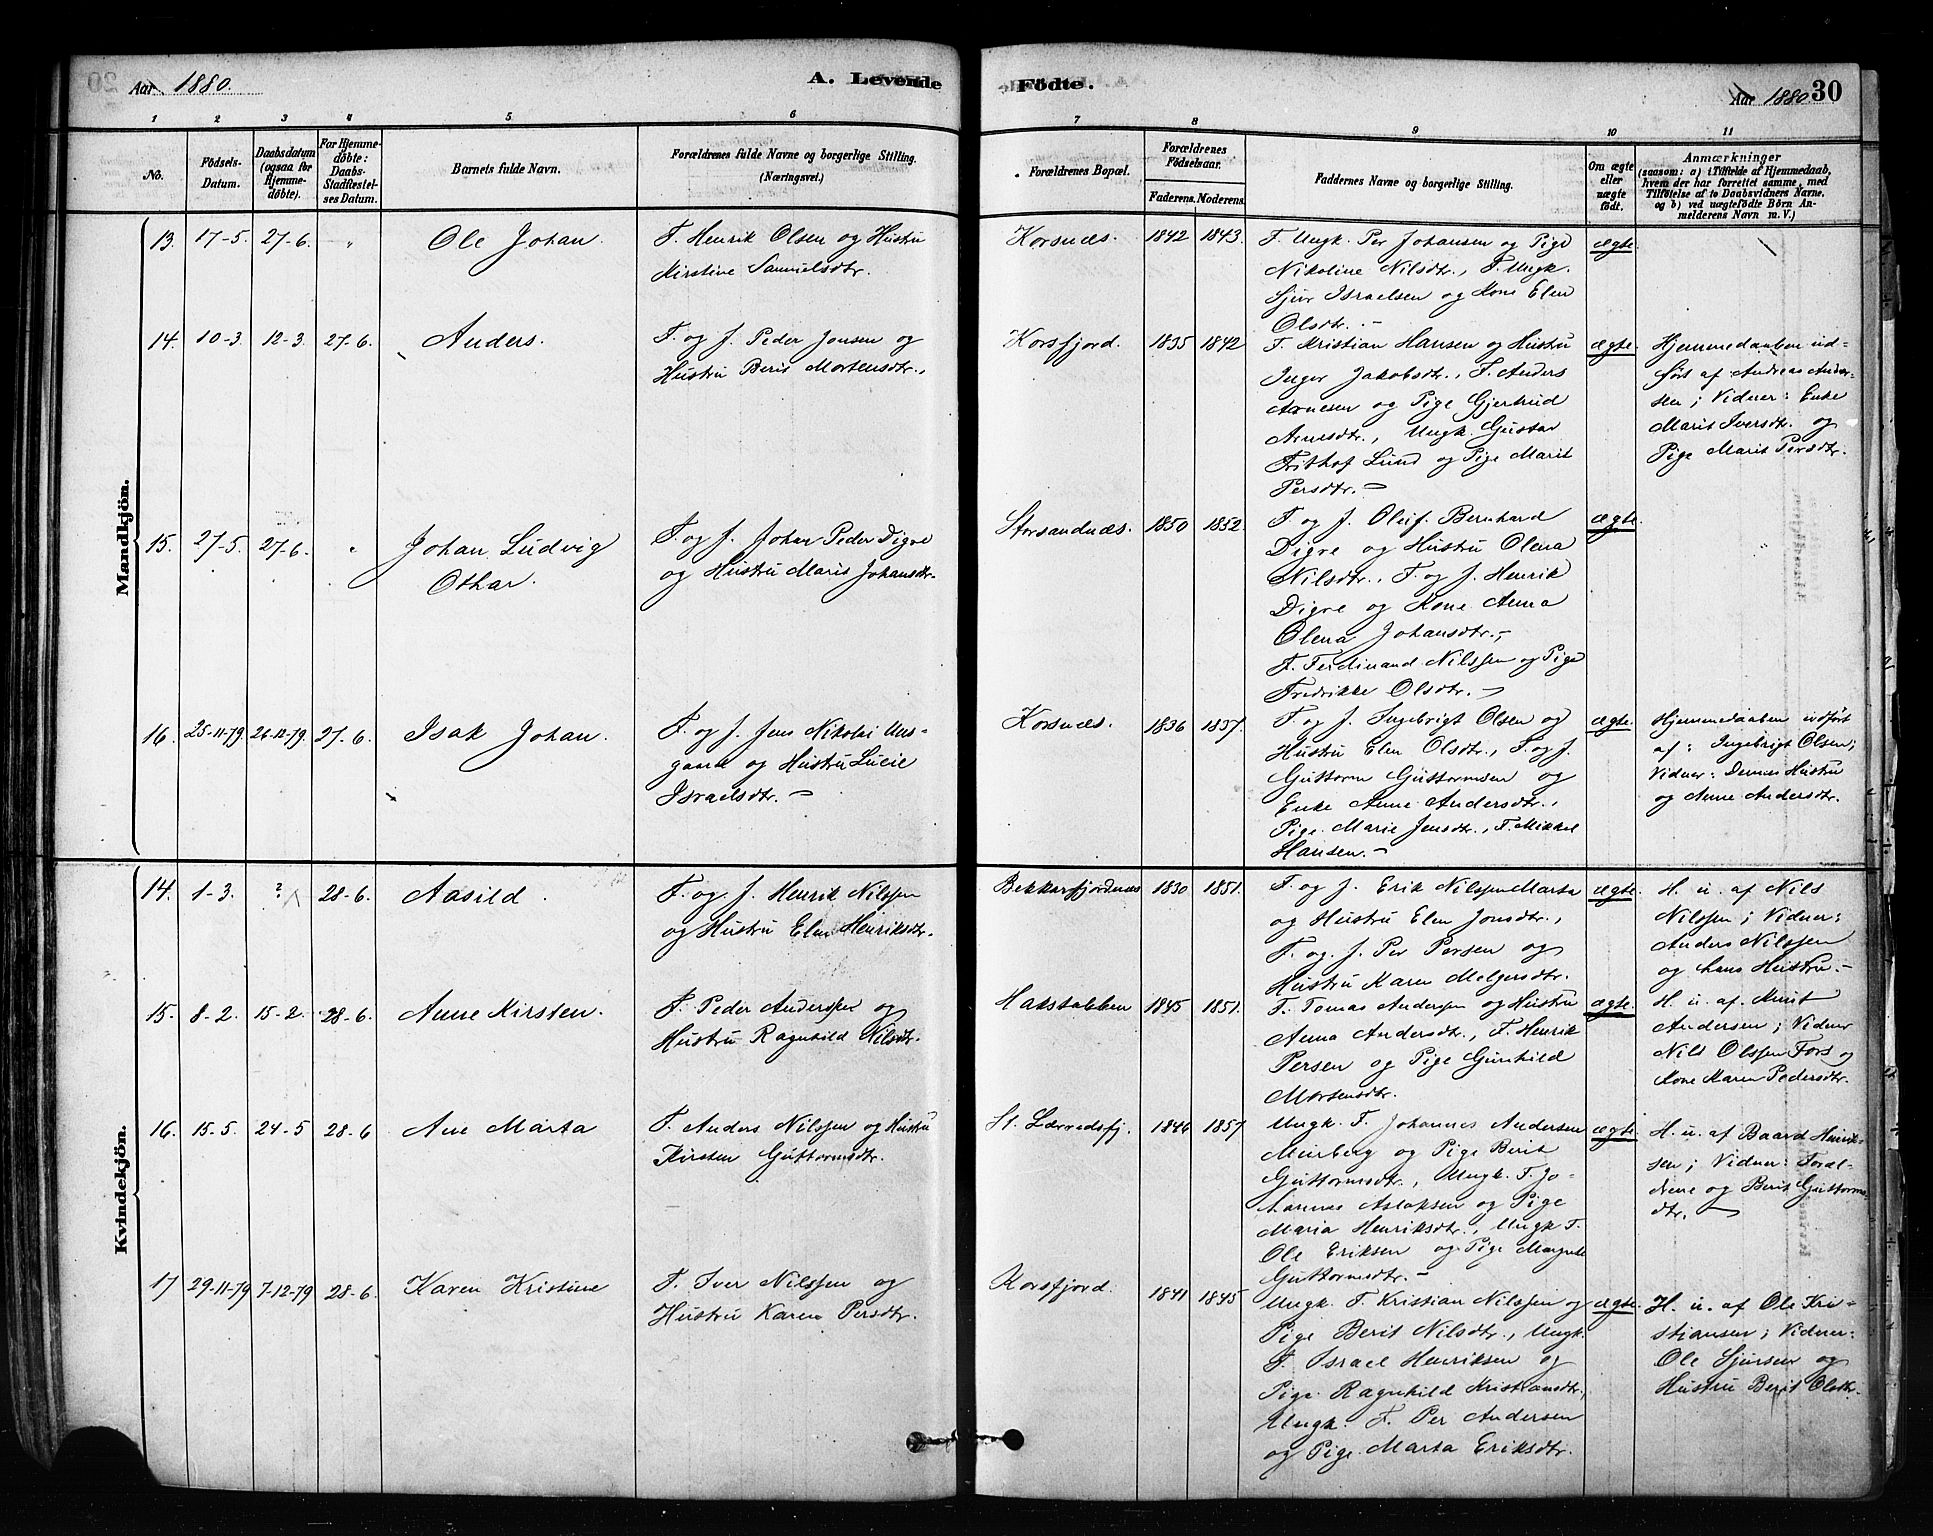 Aar 1880. A. Levende Födte. Aar 1880. 30
1 2 3 4 5 6 7 8 9 10 11
No.
Födsels-
Datum.
Daabsdatum
(ogsaa for
Hjemme-
døbte).
For Hjemme-
døbte:
Daabs-
Stadfæstel-
ses Datum.
Barnets fulde Navn.
Forældrenes fulde Navne og borgerlige Stilling.
(Næringsvei.)
Forældrenes Bopæl.
Forældrenes
Födselsaar.
Faderens. Moderens.
Faddernes Navne og borgerlige Stilling.
Om ægte
eller
uægte
født.
Anmærkninger
(saasom: a) i Tilfælde af Hjemmedaab,
hvem der har forrettet samme, med
Tilføielse af to Daabsvidners Navne,
og b) ved uægtefødte Börn An-
melderens Navn m. V.)
Mandkjön.
13. 17-5. 27-6. "
Ole Johan.
F. Henrik Olsen og Hustru
Kirstine Samuelsdtr.
Korsnæs. 1842 1843.
F. Ungk. Per Johansen og Pige
Nikoline Nilsdtr., F. Ungk.
Sjur Israelsen og Kone Elen
Olsdtr. -
ægte.
14. 10-3. 12-3. 27-6.
Anders.
F. og J. Peder Jonsen og
Hustru Berit Mortensdtr.,
Korsfjord. 1835 1842
F. Kristian Hansen og Hustru
Inger Jakobsdtr., F. Anders
Arnesen og Pige Gjertrud
Arnesdtr., Ungk. Gustav
Frithof Lund og Pige Marit
Persdtr. -
ægte.
Hjemmedaaben ud-
ført af Andreas Ander-
sen; Vidner: Enke
Marit Iversdtr. og
Pige Marit Persdtr.
15. 27-5. 27-6. "
Johan Ludvig
Othar.
F. og J. Johan Peder Digre
og Hustru Marit Johansdtr.
Storsandnæs. 1850 1852.
F. og J. Oluf Bernhard
Digre og Hustru Olena
Nilsdtr., F. og J. Henrik
Digre og Kone Anna
Olena Johansdtr.,
F. Ferdinand Nilssen og Pige
Fredrikke Olsdtr. -
ægte.
16. 25-11-79. 26-12-79. 27-6.
Isak Johan.
F. og J. Jens Nikolai Aas-
gaard og Hustru Lucie
Israelsdtr. -
Korsnæs. 1836 1837.
F. og J. Ingebrigt Olsen og
Hustru Elen Olsdtr., F. og J.
Guttorm Guttormsen og
Enke Anne Andersdtr.,
Pige Marie Jensdtr., F. Mikkel
Hansen. -
ægte.
Hjemmedaaben udført
af: Ingebrigt Olsen;
Vidner: Dennes Hustru
og Anne Andersdtr.
Kvindekjön.
14. 1-3. ? 28-6.
Aasild.
F. og J. Henrik Nilssen
og Hustru Elen Henriksdtr.
Bekkarfjordnæs 1830 1851.
F. og J. Erik Nilssen Marta
og Hustru Elen Jonsdtr.,
F. og J. Per Persen og
Hustru Karen Melgersdtr.
ægte.
H. u. af Nils
Nilssen; Vidner:
Anders Nilssen
og hans Hustru. -
15. 8-2. 15-2. 28-6.
Anne Kirsten.
F. Peder Anderssen og
Hustru Ragnhild Nilsdtr.
Hakstabben 1845 1851.
F. Tomas Andersen og Hustru
Anna Andersdtr., F. Henrik
Persen og Pige Gunhild
Mortensdtr.
ægte.
H. u. af Knut
Andersen; Vidner
Nils Olssen Fors og
Kone Karen Pedersdtr.
16. 15-5. 24-5 28-6
Ane Marta
F. Anders Nilssen og Hustru
Kirsten Guttormsdtr.
St. Lærredsfj. 1846 1857
Ungk. F. Johannes Andersen
Murberg og Pige Berit
Guttormsdtr., Ungk. F. Jo-
hannes Aslaksen og Pige
Maria Henriksdtr., Ungk. F.
Ole Eriksen og Pige Margrete
Guttormsdtr. -
ægte.
H. u. af Baard Henrik-
sen; Vidner: Foræl-
drene og Berit Guttorms-
dtr. -
17 29-11-79 7-12-79 28-6.
Karen Kristine
F. Iver Nilssen og
Hustru Karen Persdtr.
Korsfjord. 1841 1845
Ungk. F. Kristian Nilssen og
Pige Berit Nilsdtr., Ungk.
F. Israel Henriksen og
Pige Ragnhild Kristiansdtr.,
Ungk. F. Per Andersen
og Pige Marta Eriksdtr.
ægte.
H. u. af Ole Kri-
stiansen; Vidner:
Ole Sjursen og
Hustru Berit Olsdtr.